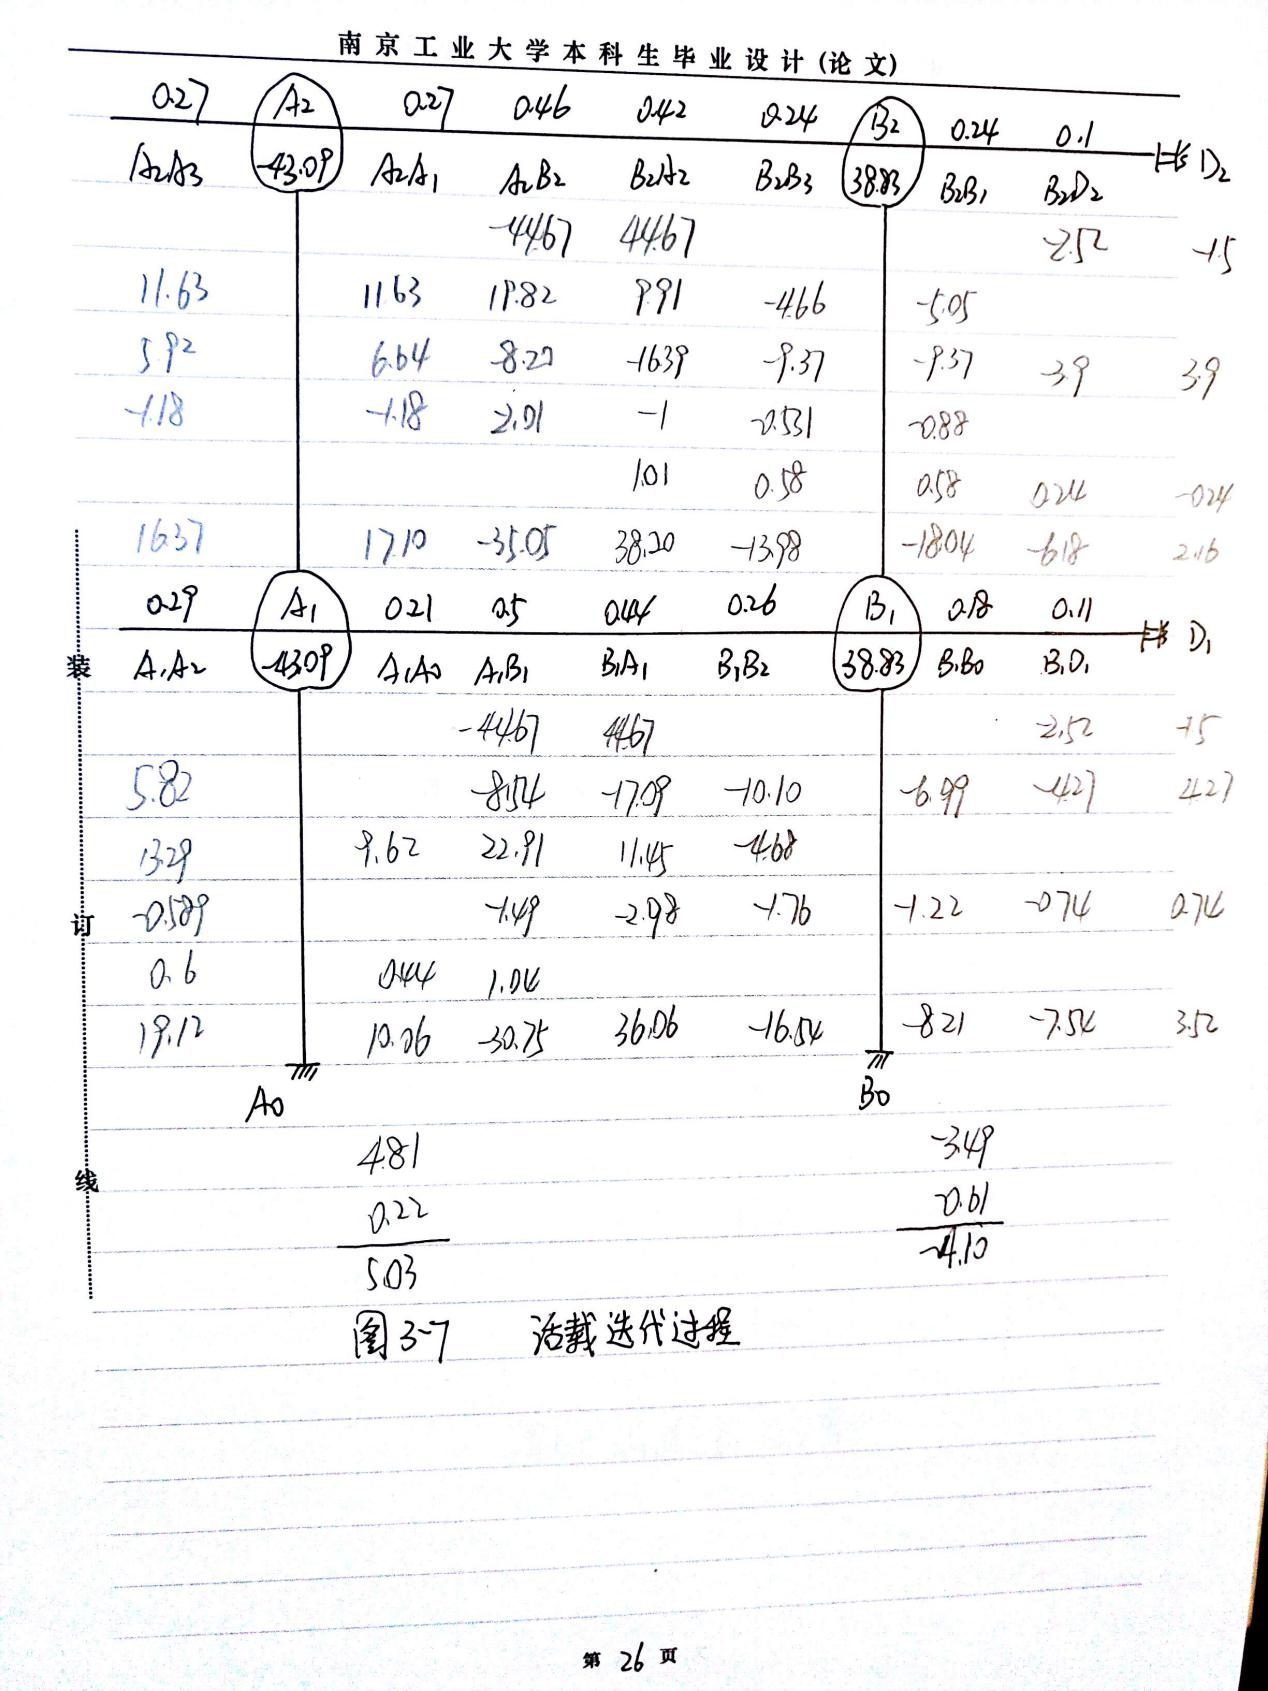 南京工业大学本科生毕业设计(论文)
0.27 A2 0.27 0.46 0.42 0.24 B2 0.24 0.1
A2A3 -43.09 A2A1 A2B2 B2A2 B2B3 38.83 B2B1 B2D2 D2
-44.67 44.67 -2.52 -1.5
11.63 11.63 19.82 9.91 -4.66 -5.05
5.92 6.64 -8.20 -16.39 -9.37 -9.37 -3.9 3.9
-1.18 -1.18 -2.01 -1 -0.531 -0.88
1.01 0.58 0.58 0.24 -0.24
16.37 17.10 -35.05 38.20 -13.98 -18.04 -6.18 2.16
0.29 A1 0.21 0.5 0.44 0.26 B1 0.18 0.11
装 A1A2 -43.09 A1A0 A1B1 B1A1 B1B2 38.83 B1B0 B1D1 D1
-44.67 44.67 -2.52 -1.5
5.82 -8.54 -17.09 -10.10 -6.99 -4.27 4.27
13.29 9.62 22.91 11.45 -4.68
订 -0.589 -1.49 -2.98 -1.76 -1.22 -0.74 0.74
0.6 0.44 1.04
19.12 10.06 -30.75 36.06 -16.54 -8.21 -7.54 3.52
A0 B0
4.81 -3.49
线 0.22 -0.61
5.03 -4.10
图3-7 活载迭代过程
第 26 页